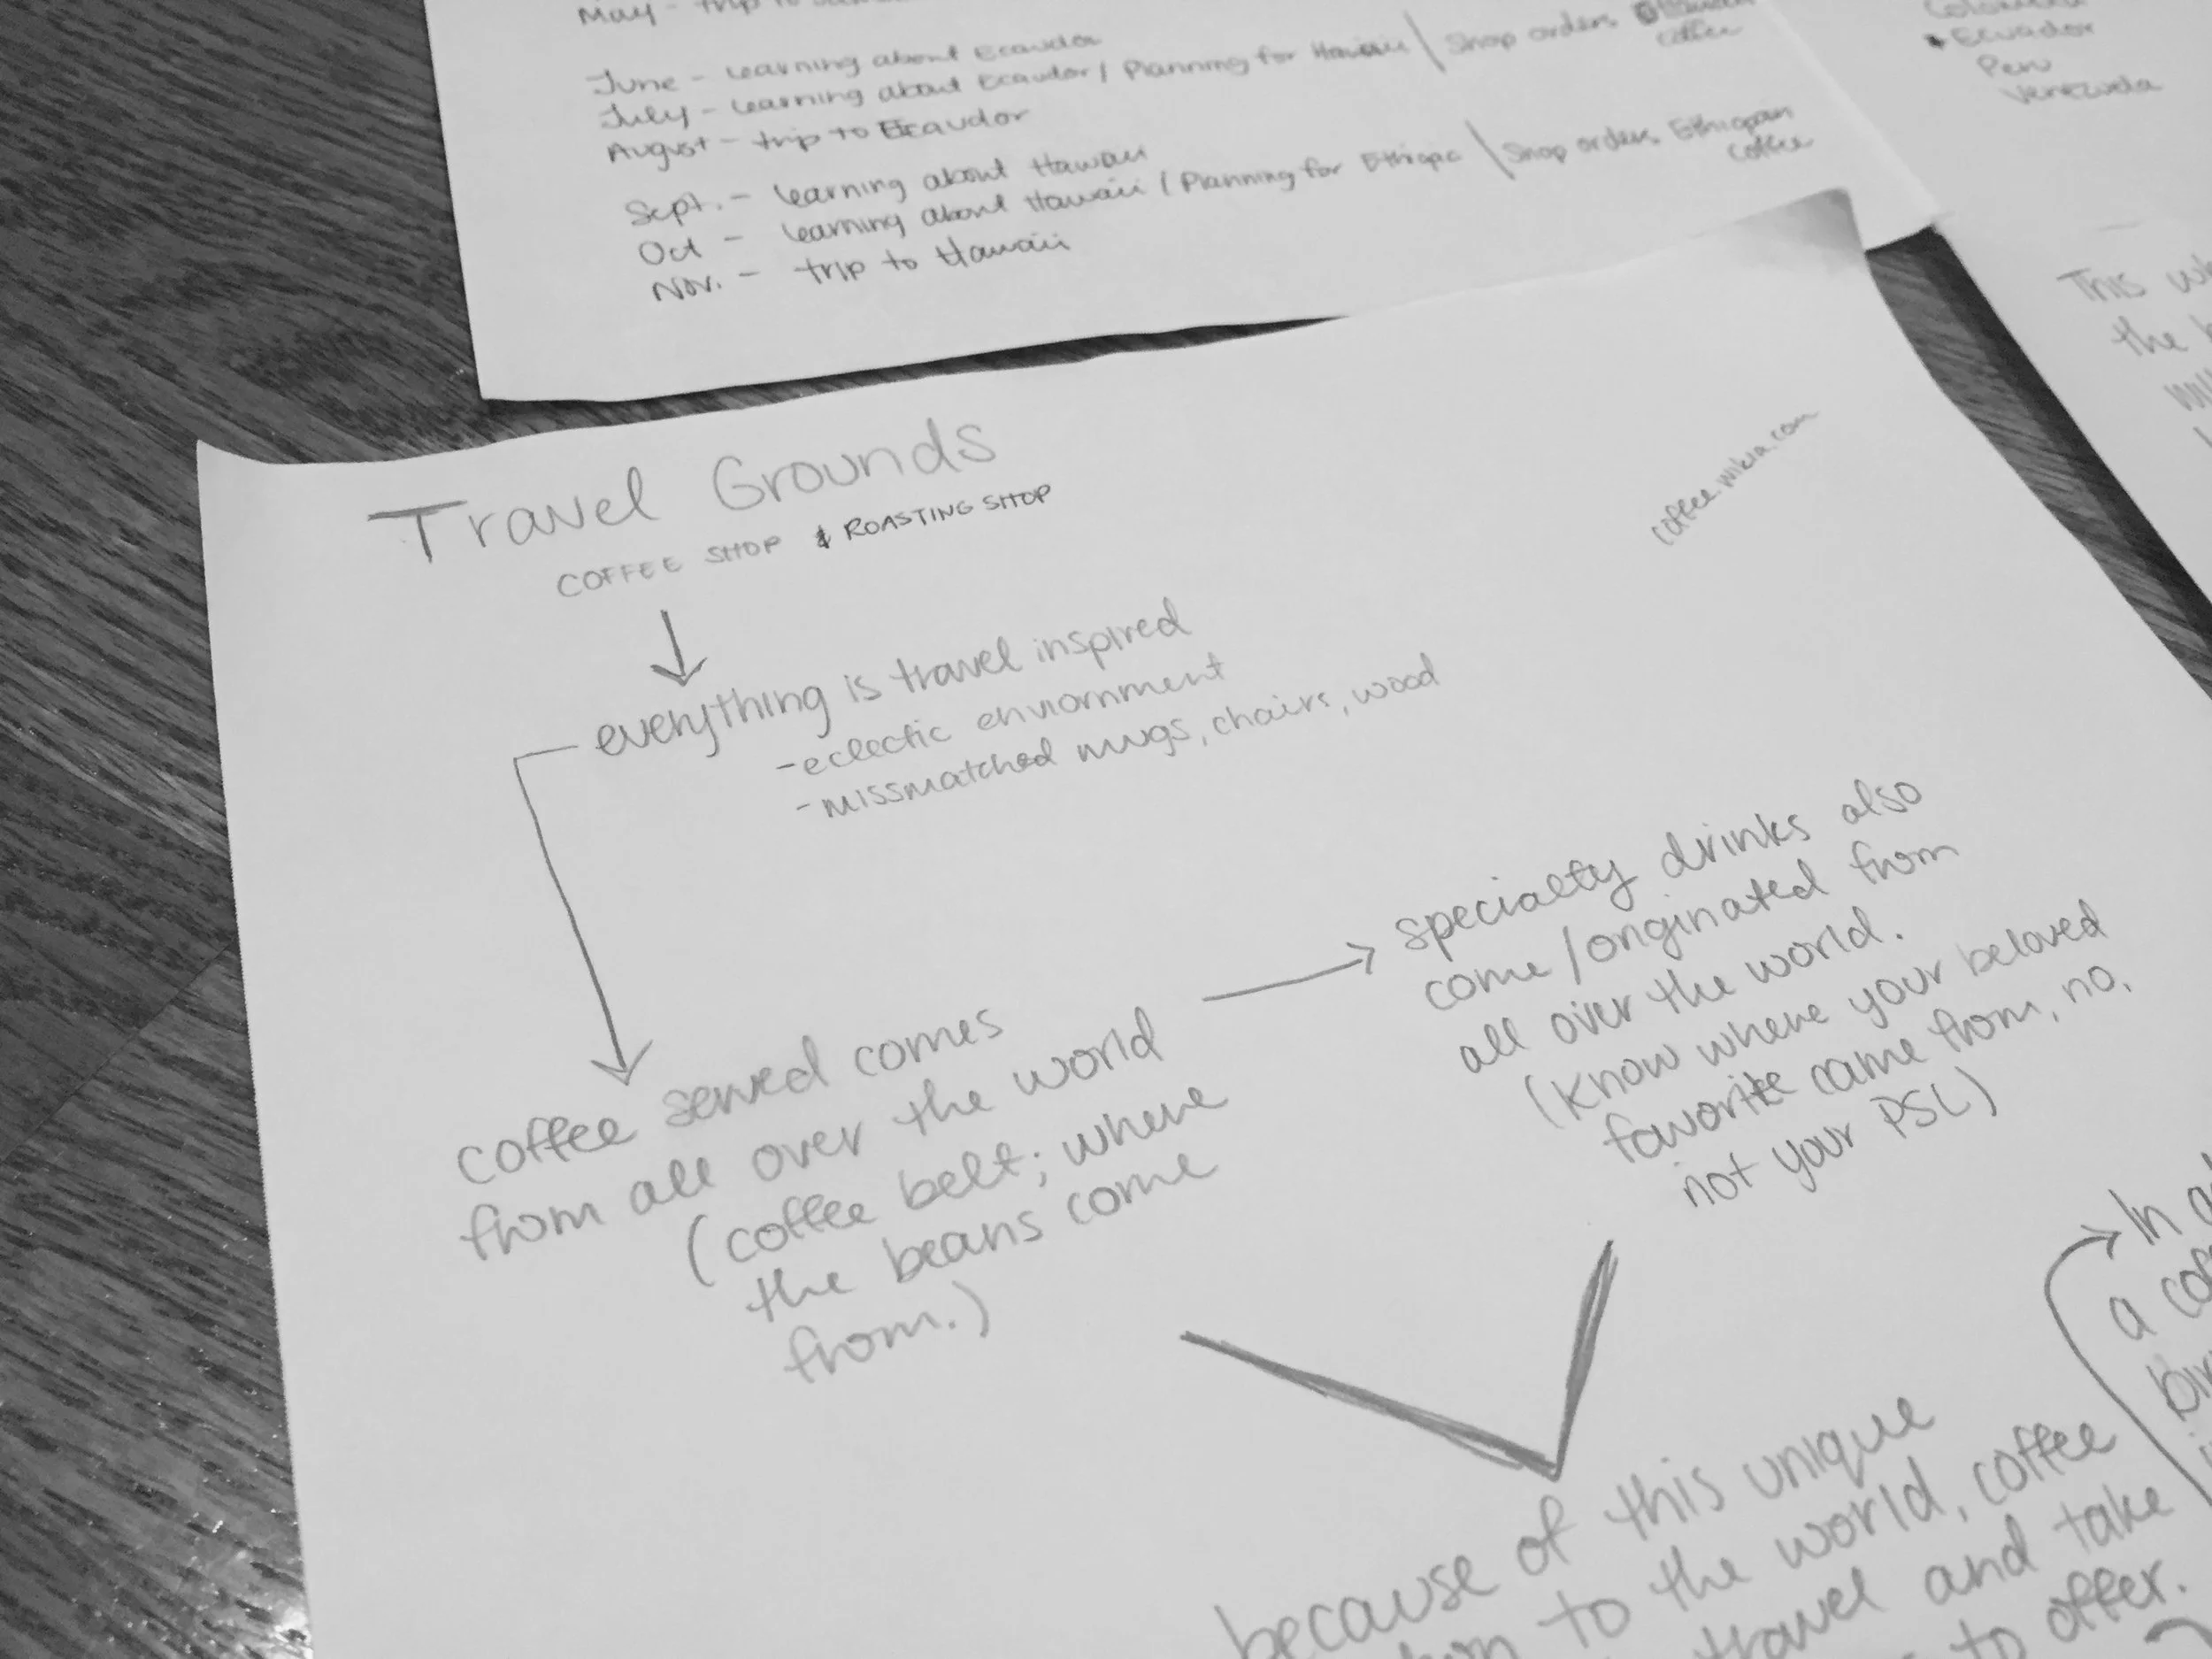 May - trip to
June - learning about Ecaudor
July - learning about Ecaudor / Planning for Hawaii \ Shop orders
coffee
August - trip to Ecaudor
Sept. - learning about Hawaii
Oct - learning about Hawaii / Planning for Ethiopia \ Shop orders Ethiopan
coffee
Nov. - trip to Hawaii
Ecuador
Peru
Venezuela
This
the
Travel Grounds
COFFEE SHOP & ROASTING SHOP
coffee.wikia.com
everything is travel inspired
- eclectic enviornment
- missmatched mugs, chairs, wood
coffee served comes
from all over the world
(coffee belt; where
the beans come
from.)
specialty drinks also
come/originated from
all over the world.
(know where your beloved
favorite came from, no,
not your PSL)
In
a
because of this unique
to the world, coffee
travel and take
to offer.